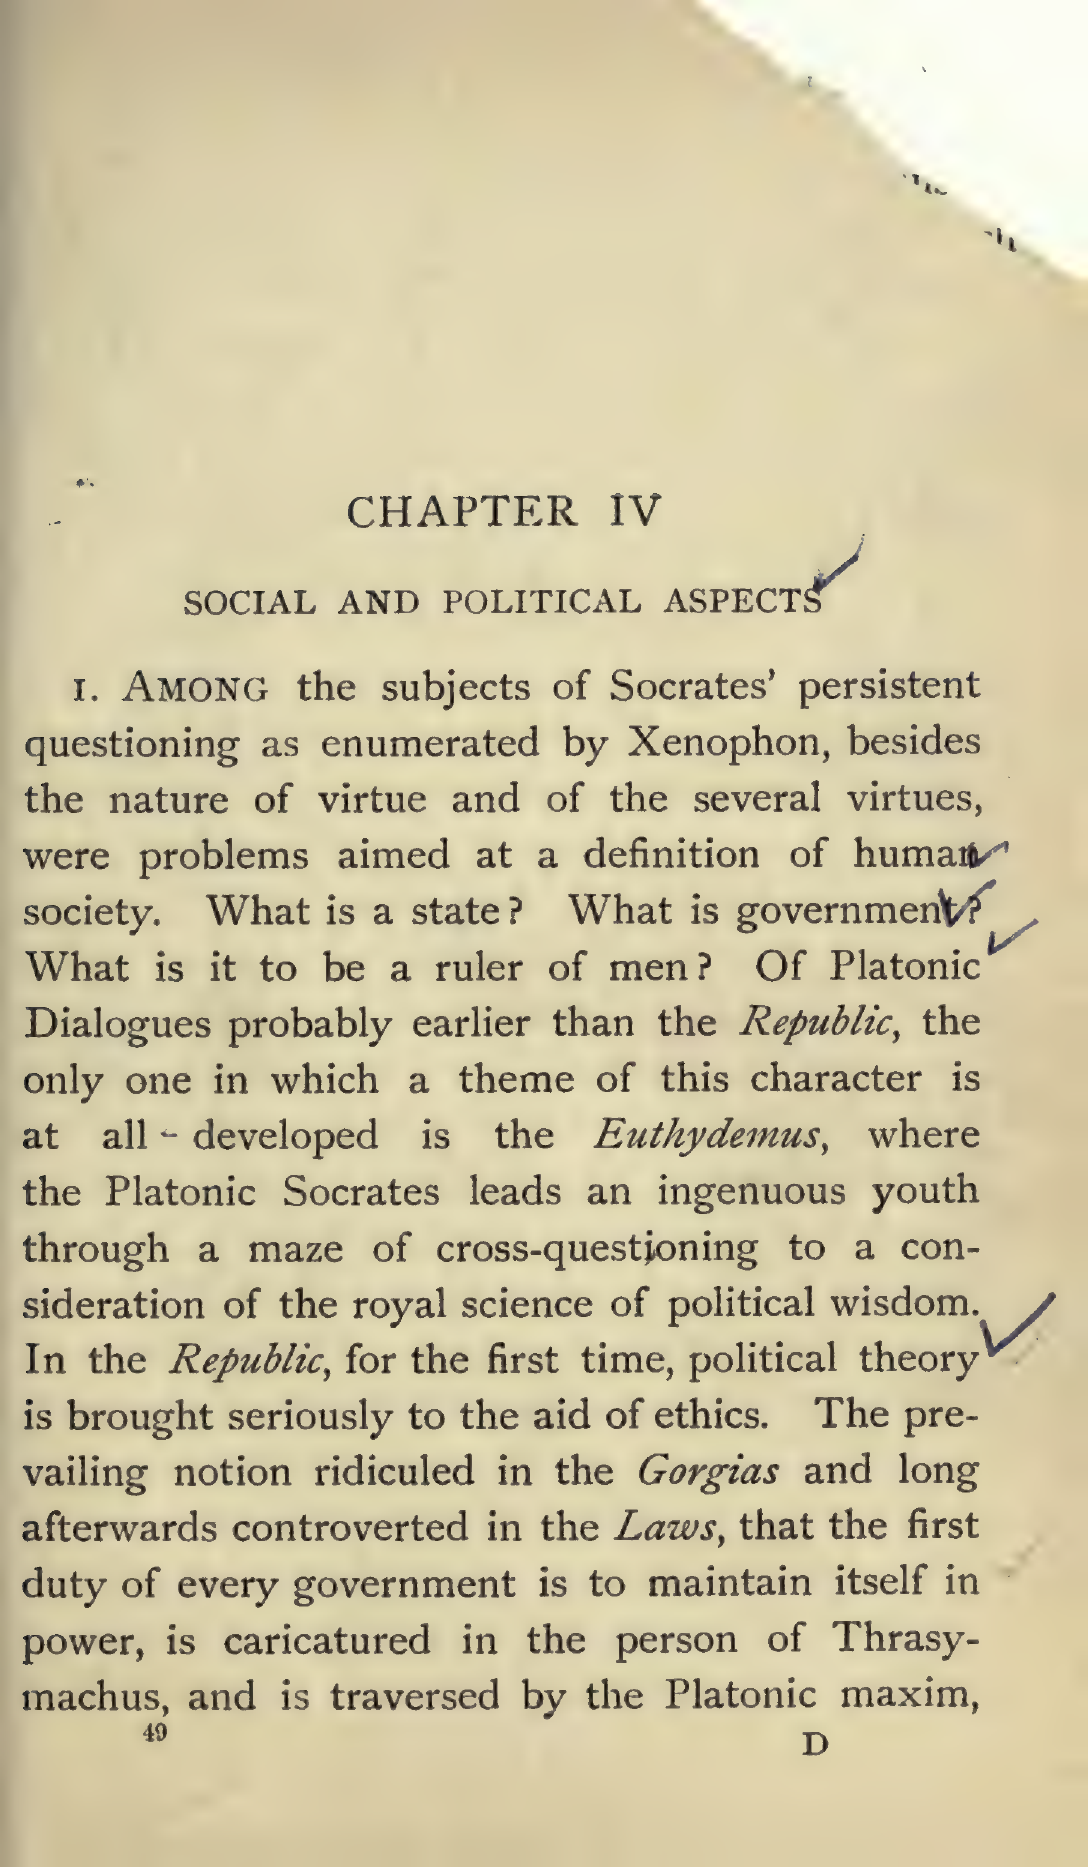 CHAPTER IV
SOCIAL AND POLITICAL ASPECTS
1. AMONG the subjects of Socrates' persistent
questioning as enumerated by Xenophon, besides
the nature of virtue and of the several virtues,
were problems aimed at a definition of human
society. What is a state? What is government?
What is it to be a ruler of men? Of Platonic
Dialogues probably earlier than the Republic, the
only one in which a theme of this character is
at all - developed is the Euthydemus, where
the Platonic Socrates leads an ingenuous youth
through a maze of cross-questioning to a con-
sideration of the royal science of political wisdom.
In the Republic, for the first time, political theory
is brought seriously to the aid of ethics. The pre-
vailing notion ridiculed in the Gorgias and long
afterwards controverted in the Laws, that the first
duty of every government is to maintain itself in
power, is caricatured in the person of Thrasy-
machus, and is traversed by the Platonic maxim,
49 D